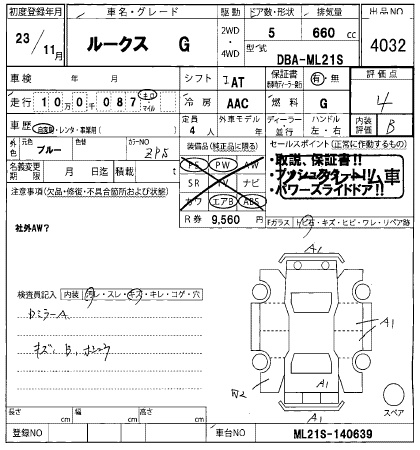 初度登録年月 車名・グレード 駆動 ドア数・形状 排気量 出品NO
23/11月 ルークス G 2WD・4WD 5 660 cc 4032
型式 DBA-ML21S
車検 年 月 シフト IAT 保証書 有・無 評価点
走行 10万0千087 キロ・マイル 冷房 AAC 燃料 G 4
車歴 自家用・レンタ・事業用( ) 定員 4人 外車モデル 年 ディーラー・並行 ハンドル 左・右 内装評価 B
外色 元色 ブルー 色替 カラーNO ZPN 装備品(純正品に限る) セールスポイント(正常に作動するもの)
名義変更期限 月 日迄 積載 t PS PW AW
SR TV ナビ
カワ エアB ABS
・取説、保証書!!
・プッシュスタート
・パワースライドドア!!
注意事項(欠品・修復・不具合箇所および状態)
R券 9,560 円
社外AW? Fガラス トビ石・キズ・ヒビ・ワレ・リペア跡
検査員記入 内装 汚レ・スレ・キズ・キレ・コゲ・穴
DミラーA
キズ、B、
A1
A1
A1
A1
A1
W2
スペア
長さ cm 幅 cm 高さ cm
登録NO 車台NO ML21S-140639